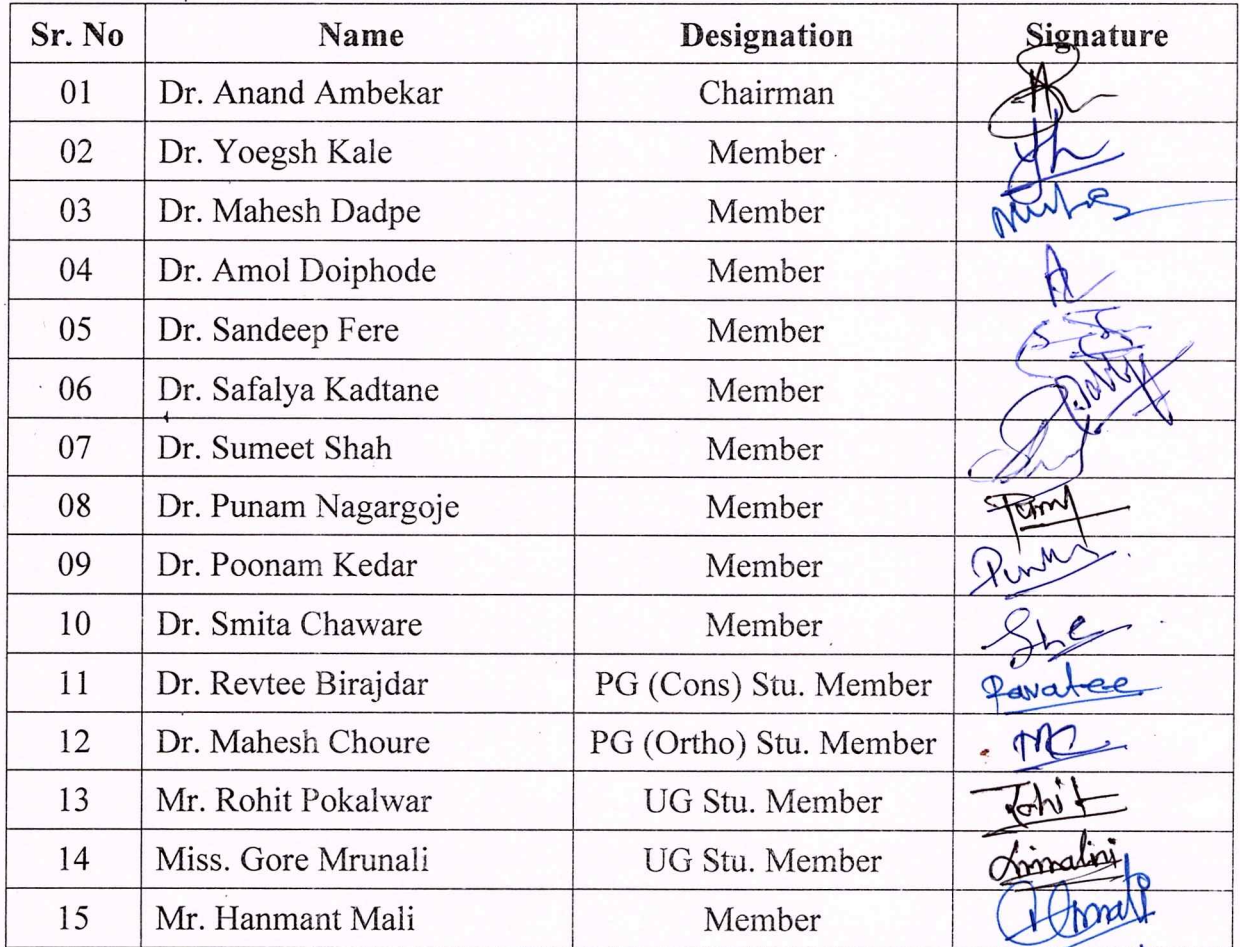 Sr. No Name Designation Signature
01 Dr. Anand Ambekar Chairman
02 Dr. Yoegsh Kale Member
03 Dr. Mahesh Dadpe Member
04 Dr. Amol Doiphode Member
05 Dr. Sandeep Fere Member
06 Dr. Safalya Kadtane Member
07 Dr. Sumeet Shah Member
08 Dr. Punam Nagargoje Member
09 Dr. Poonam Kedar Member
10 Dr. Smita Chaware Member
11 Dr. Revtee Birajdar PG (Cons) Stu. Member Ravatee
12 Dr. Mahesh Choure PG (Ortho) Stu. Member MC
13 Mr. Rohit Pokalwar UG Stu. Member Rohit
14 Miss. Gore Mrunali UG Stu. Member
15 Mr. Hanmant Mali Member